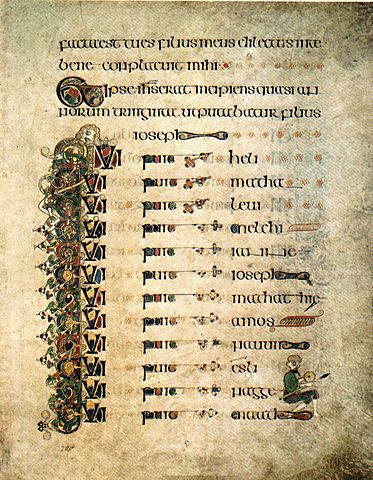 factaest tues filius meus dilectus inte
bene conplacuit mihi
ipse erat incipiens quasi an
norum triginta ut putabatur filius
ioseph
Qui fuit heli
Qui fuit matha
Qui fuit leui
Qui fuit melchi
Qui fuit
Qui fuit ioseph
Qui fuit mathathie
Qui fuit amos
Qui fuit
Qui fuit esli
Qui fuit nagge
Qui fuit